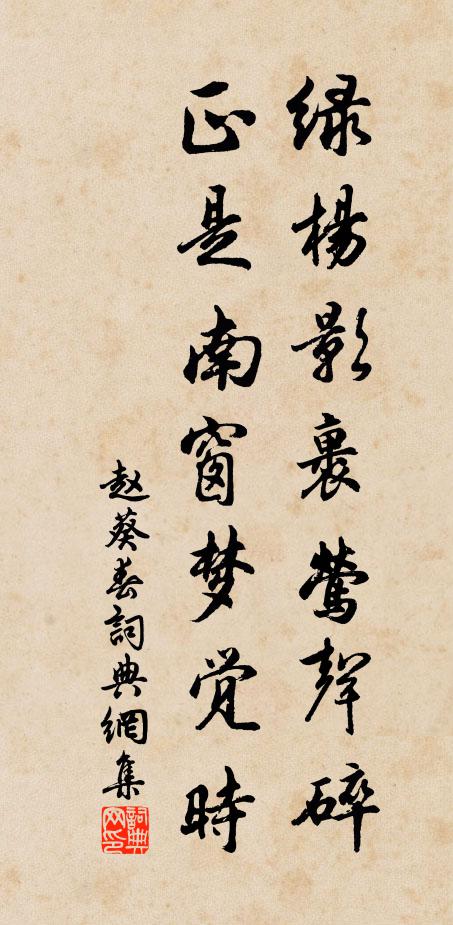 绿杨影裹莺聲碎
正是南窗梦觉時
赵葵春詞典網集
詞典网印